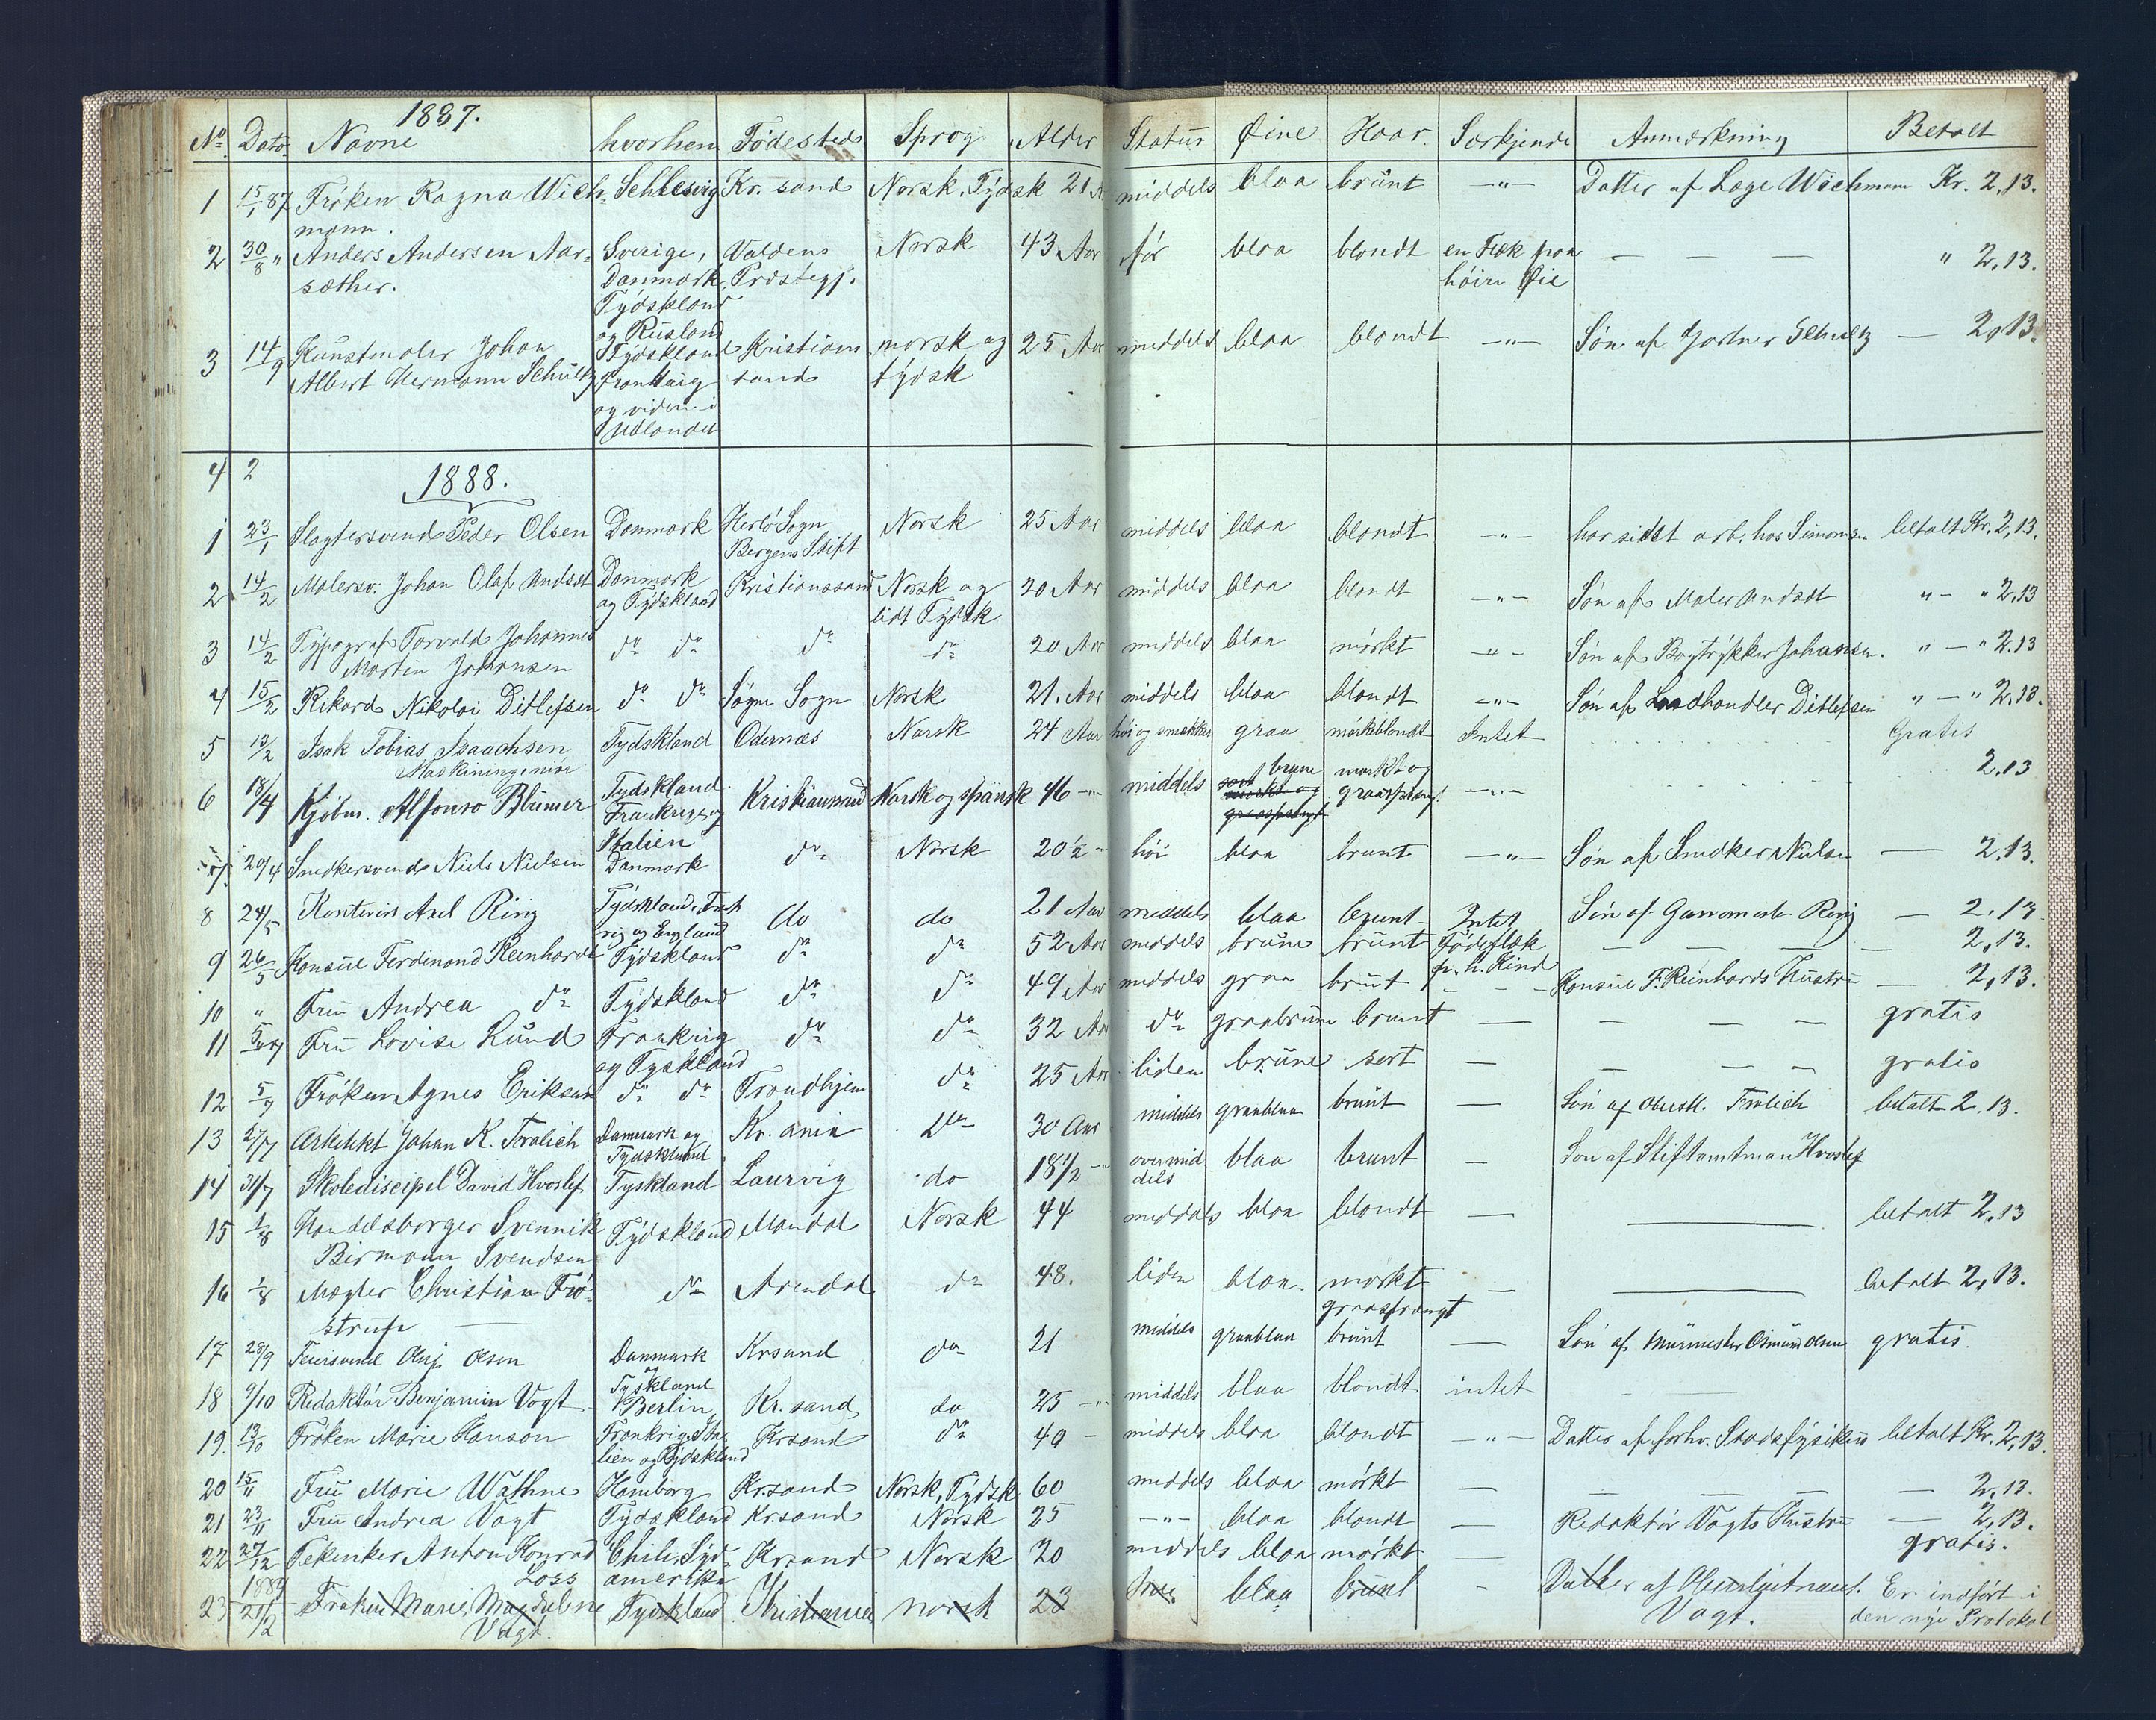 1887.
No. Dato. Navne hvorhen Födested Sprog Alder Statur Øine Haar. Særkjende Anmærkning Betalt
1 15/1 87 Fröken Ragna Wich- Schlesvig Kr. sand Norsk, Tÿdsk 21 middels blaa brunt —"— Datter af Læge Wichmann Kr. 2,13.
mann.
2 30/8 " Anders Andersen Aar- Sverige, Valdens Norsk 43 Aar för blaa blondt en Flæk paa — — — " 2,13.
sæther. Danmark Præstegj. höire Øie
Tÿdskland
og Rusland
3 14/9 Kunstmaler Johan Tÿdskland Kristians norsk og 25 Aar middels blaa blondt —"— Sön af Gartner Schultz — 2,13.
Albert Hermann Schultz Frankrig sand tÿdsk
og viden i
Udlandet
4 2
1888.
1 23/1 Slagtersvend Peder Olsen Danmark Herlö Sogn Norsk 25 Aar middels blaa blondt —"— har sidst arb. hos Simonsen betalt Kr. 2,13.
Bergens Stift
2 14/2 Malersv. Johan Olaf Undsdt Danmark Kristianssand Norsk og 20 Aar middels blaa blondt —"— Sön af Maler Undsdt " — " 2,13
og Tÿdskland lidt Tÿdsk
3 14/2 Tÿpograf Torvald Johannes do do do do 20 Aar middels blaa mörkt —"— Sön af Bogtrÿkker Johansen. " — " 2.13
Martin Johansen
4 15/2 Rikard Nikolai Ditlefsen do do Sögne Sogn Norsk 21. Aar middels blaa blondt —"— Sön af Landhandler Ditlefsen " — " 2.13.
5 13/2 Isak Tobias Isaachsen Tydskland Odernæs Norsk 24 Aar höi og smækker graa mörkeblondt Intet Gratis
Maskiningeniör
6 18/4 Kjöbm. Alfonso Blumer Tydskland Kristianssund Norsk og spansk 46 —"— middels brune mörkt og —"— 2.13
Frankrig og graasprængt
Italien
7. 20/4 Snedkersvend Niels Nielsen Danmark do Norsk 20½ — höi blaa brunt —"— Sön af Snedker Nielsen — 2.13.
8 24/5 Kontorist Axel Ring Tÿdskland, Frank do do 21 Aar middels blaa brunt Intet Sön af Garvermester Ring — 2.13.
rig og England
9 26/5 Konsul Ferdinand Reinhardt Tÿdskland do do 52 Aar middels brune brunt Födeflæk — — — — 2,13.
p. h. Kind
10 " Fru Andrea do Tÿdskland do do 49 Aar middels graa brunt — — — Konsul F. Reinhards Hustru — 2,13.
11 5/7 Fru Lovise Lund Frankrig do do 32 Aar do graabrune brunt — — — — gratis
og Tyskland
12 5/7 Fröken Agnes Eriksen do do Trondhjem do 25 Aar liden brune sort — — — — gratis
13 27/7 Arkitekt Johan K. Frölich Danmark og Kr. ania do 30 Aar middels graablaa brunt — Sön af Oberstl. Frölich betalt 2.13.
Tydskland
14 31/7 Skolediscipel David Hvoslef Tyskland Laurvig do 18½ —"— over mid blaa brunt — Sön af Stiftamtman Hvoslef
dels
15 1/8 Handelsborger Svennik Tÿdskland Mandal Norsk 44 middels blaa blondt — — betalt 2,13
Birmann Svendsen
16 1/8 Mægler Christian Frö- do Arendal do 48. liden blaa. mörkt — — betalt 2,13.
strup — graasprængt
17 28/9 Feiersvend Oluf Olsen Danmark Krsand do 21 middels graablaa brunt — Sön af Murmester Osmund Olsen gratis.
og
Tyskland
18 9/10 Redaktör Benjamin Vogt Berlin Kr. sand do 25 —"— middels blaa blondt intet — —
19. 13/10 Fröken Marie Hanson Frankrig, Ita- Krsand do 40 — middels blaa blondt —"— Datter af forhv. Stadsfÿsikus betalt Kr. 2,13.
lien og Tÿdskland
20 15/11 Fru Marie Wathne Hamborg Krsand Norsk, Tÿdsk 60 middels blaa mörkt — — — — 2,13.
21 23/11 Fru Andrea Vogt Tÿdskland Krsand Norsk 25 —"— blaa blondt — Redaktör Vogts Hustru — 2,13.
22 27/12 Tekniker Anton Konrad Chili, Sÿd- Krsand Norsk 20 middels blaa mörkt — gratis.
Loss amerika
1889
23 21/2 Fröken Marie Magdalene Tydskland Kristiania norsk 23 blaa brunt - Datter af Oberstlöitnant Er indfört i
Vogt. Vogt. den nÿe Protokol